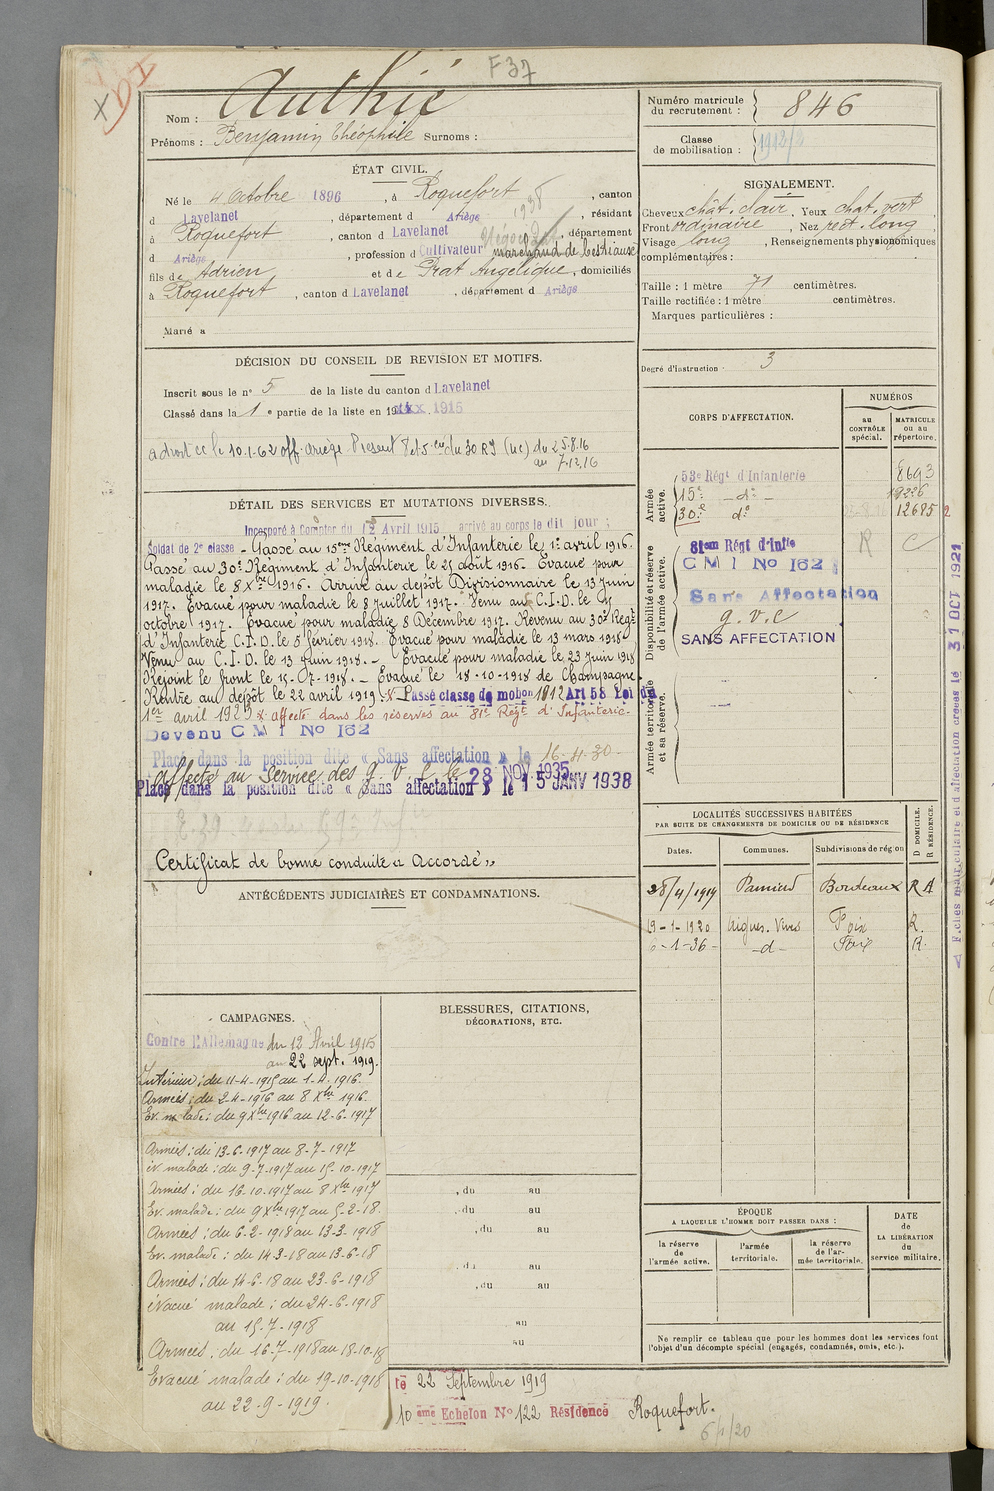 F 37
Nom : Authié
Prénoms : Benjamin Théophile Surnoms :
Numéro matricule
du recrutement : 846
Classe
de mobilisation :
ÉTAT CIVIL.
Né le 4 Octobre 1896, à Roquefort, canton
d Lavelanet, département d Ariège, résidant
à Roquefort, canton d Lavelanet, département
d Ariège, profession d Cultivateur marchand de bestiaux
fils de Adrien et de Prat Angélique, domiciliés
à Roquefort, canton d Lavelanet, département d Ariège
Marié à
SIGNALEMENT.
Cheveux chât. clair, Yeux chat. vert
Front ordinaire, Nez rect. long
Visage long, Renseignements physionomiques
complémentaires :
Taille : 1 mètre 71 centimètres.
Taille rectifiée : 1 mètre centimètres.
Marques particulières :
Degré d'instruction 3
DÉCISION DU CONSEIL DE REVISION ET MOTIFS.
Inscrit sous le n° 5 de la liste du canton d Lavelanet
Classé dans la 1 e partie de la liste en 19 1915
a droit cc le 10.1.62 off. Ariège. Présent 7 et 5 cie du 30 RI (uc) du 25.8.16
au 7.12.16
CORPS D'AFFECTATION.
NUMÉROS
au
CONTRÔLE
spécial.
MATRICULE
ou au
répertoire.
Armée
active.
53e Régt d'Infanterie 8693
15e - do -
30e do 12685
Disponibilité et réserve
de l'armée active.
81em Régt d'Infie R C
C M I No 162
Sans Affectation
g.v.c
SANS AFFECTATION
Armée territoriale
et sa réserve.
DÉTAIL DES SERVICES ET MUTATIONS DIVERSES.
Incorporé à Compter du 12 Avril 1915 arrivé au corps le dit jour ;
Soldat de 2e classe - Passé au 15ème Régiment d'Infanterie le 1er avril 1916.
Passé au 30e Régiment d'Infanterie le 25 août 1916. Evacué pour
maladie le 8 Xbre 1916. Arrivé au dépôt Divisionnaire le 13 juin
1917. Evacué pour maladie le 8 juillet 1917. Venu au C.I.D. le 15
octobre 1917. Evacué pour maladie 8 Décembre 1917. Revenu au 30e Régt
d'Infanterie C.I.D. le 5 février 1918. Evacué pour maladie le 13 mars 1918
Venu au C.I.D. le 13 juin 1918. - Evacué pour maladie le 23 juin 1918
Rejoint le front le 15-07-1918. - Evacué le 18-10-1918 de Champagne.
Rentré au dépôt le 22 avril 1919. Passé classe de mobon 1912 Art 58 Loi du
1er avril 1923 affecté dans les réserves au 81e Régt d'Infanterie-
Devenu C M I No 162
Placé dans la position dite « Sans affectation » le 16-4-30-
Affecté au service des g.v.c le 28 NOV 1935
Placé dans la position dite « Sans affectation » le 15 JANV 1938
Certificat de bonne conduite « Accordé »
ANTÉCÉDENTS JUDICIAIRES ET CONDAMNATIONS.
LOCALITÉS SUCCESSIVES HABITÉES
PAR SUITE DE CHANGEMENTS DE DOMICILE OU DE RÉSIDENCE
Dates.
Communes.
Subdivisions de région
D DOMICILE.
R RÉSIDENCE.
28/4/1919 Bordeaux RA
19-1-1920 Aigues. Vives Foix R.
6-1-36- -d- Foix R.
31 OCT 1921
CAMPAGNES.
Contre l'Allemagne du 12 Avril 1915
au 22 sept. 1919.
Intérieur : du 11-4-1915 au 1-4-1916.
Armées : du 2-4-1916 au 8 Xbre 1916.
Ev. malade : du 9 Xbre 1916 au 12-6-1917
Armées : du 13-6-1917 au 8-7-1917
Ev malade : du 9-7-1917 au 15-10-1917
Armées : du 16-10-1917 au 8 Xbre 1917
Ev. malade : du 9 Xbre 1917 au 5-2-18.
Armées : du 6-2-1918 au 13-3-1918
Ev. malade : du 14-3-18 au 13-6-18
Armées : du 14-6-18 au 23-6-1918
évacué malade : du 24-6-1918
au 15-7-1918
Armées. du 16-7-1918 au 18-10-18
Evacué malade : du 19-10-1918
au 22-9-1919.
BLESSURES, CITATIONS,
DÉCORATIONS, ETC.
, du au
, du au
, du au
, du au
, du au
au
au
ÉPOQUE
A LAQUELLE L'HOMME DOIT PASSER DANS :
la réserve
de
l'armée active.
l'armée
territoriale.
la réserve
de l'ar-
mée territoriale.
DATE
de
LA LIBÉRATION
du
service militaire.
Ne remplir ce tableau que pour les hommes dont les services font
l'objet d'un décompte spécial (engagés, condamnés, omis, etc.).
le 22 Septembre 1919
10 eme Echelon No 122 Résidence Roquefort.
6/1/20